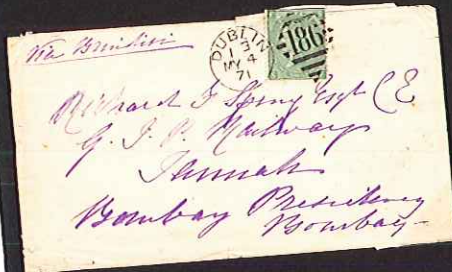 Via Brindisi
DUBLIN
1 3
MY 4
71
186
Richard F Spring Esqr C E
G. I. P. Railway
Tannah
Bombay Presidency
Bombay